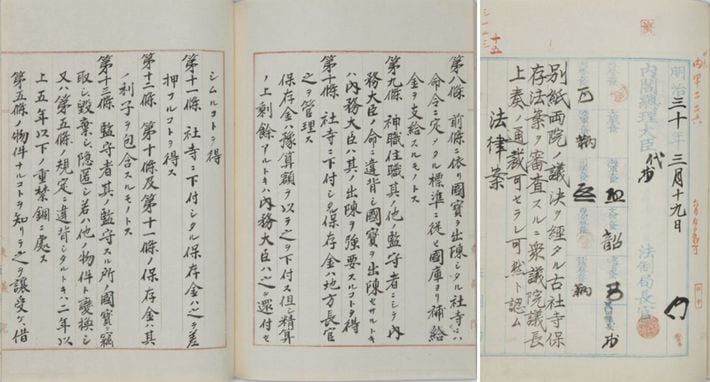 明治三十年三月十九日
内閣總理大臣
法制局長官
別紙両院ノ議決ヲ経タル古社寺保
存法案ヲ審査スルニ衆議院議長
上奏ノ通裁可セラレ可然ト認ム
法律案
第八條 前條ニ依リ國寳ヲ出陳シタル社寺ニハ
命令ニ定メタル標準ニ従ヒ國庫ヨリ補給
金ヲ支給スルモノトス
第九條 神職住職其ノ他ノ監守者ニシテ内
務大臣ノ命ニ違背シ國寳ヲ出陳セサルトキ
ハ内務大臣ハ其ノ出陳ヲ強要スルコトヲ得
第十條 社寺ニ下付シタル保存金ハ地方長官
之ヲ管理ス
保存金ハ豫算額ヲ以テ之ヲ下付ス但シ精算
ノ上剰餘アルトキハ内務大臣ハ之ヲ還付セ
シムルコトヲ得
第十一條 社寺ニ下付シタル保存金ハ之ヲ差
押フルコトヲ得ス
第十二條 第十條及第十一條ノ保存金ハ其
ノ利子ヲ包含スルモノトス
第十三條 監守者其ノ監守スル所ノ國寳ヲ竊
取シ毀棄シ隠匿シ若ハ他ノ物件ト変換シ
又ハ第五條ノ規定ニ違背シタルトキハ二年以
上五年以下ノ重禁錮ニ處ス
第五條ノ物件ナルコトヲ知リテ之ヲ譲受ケ借